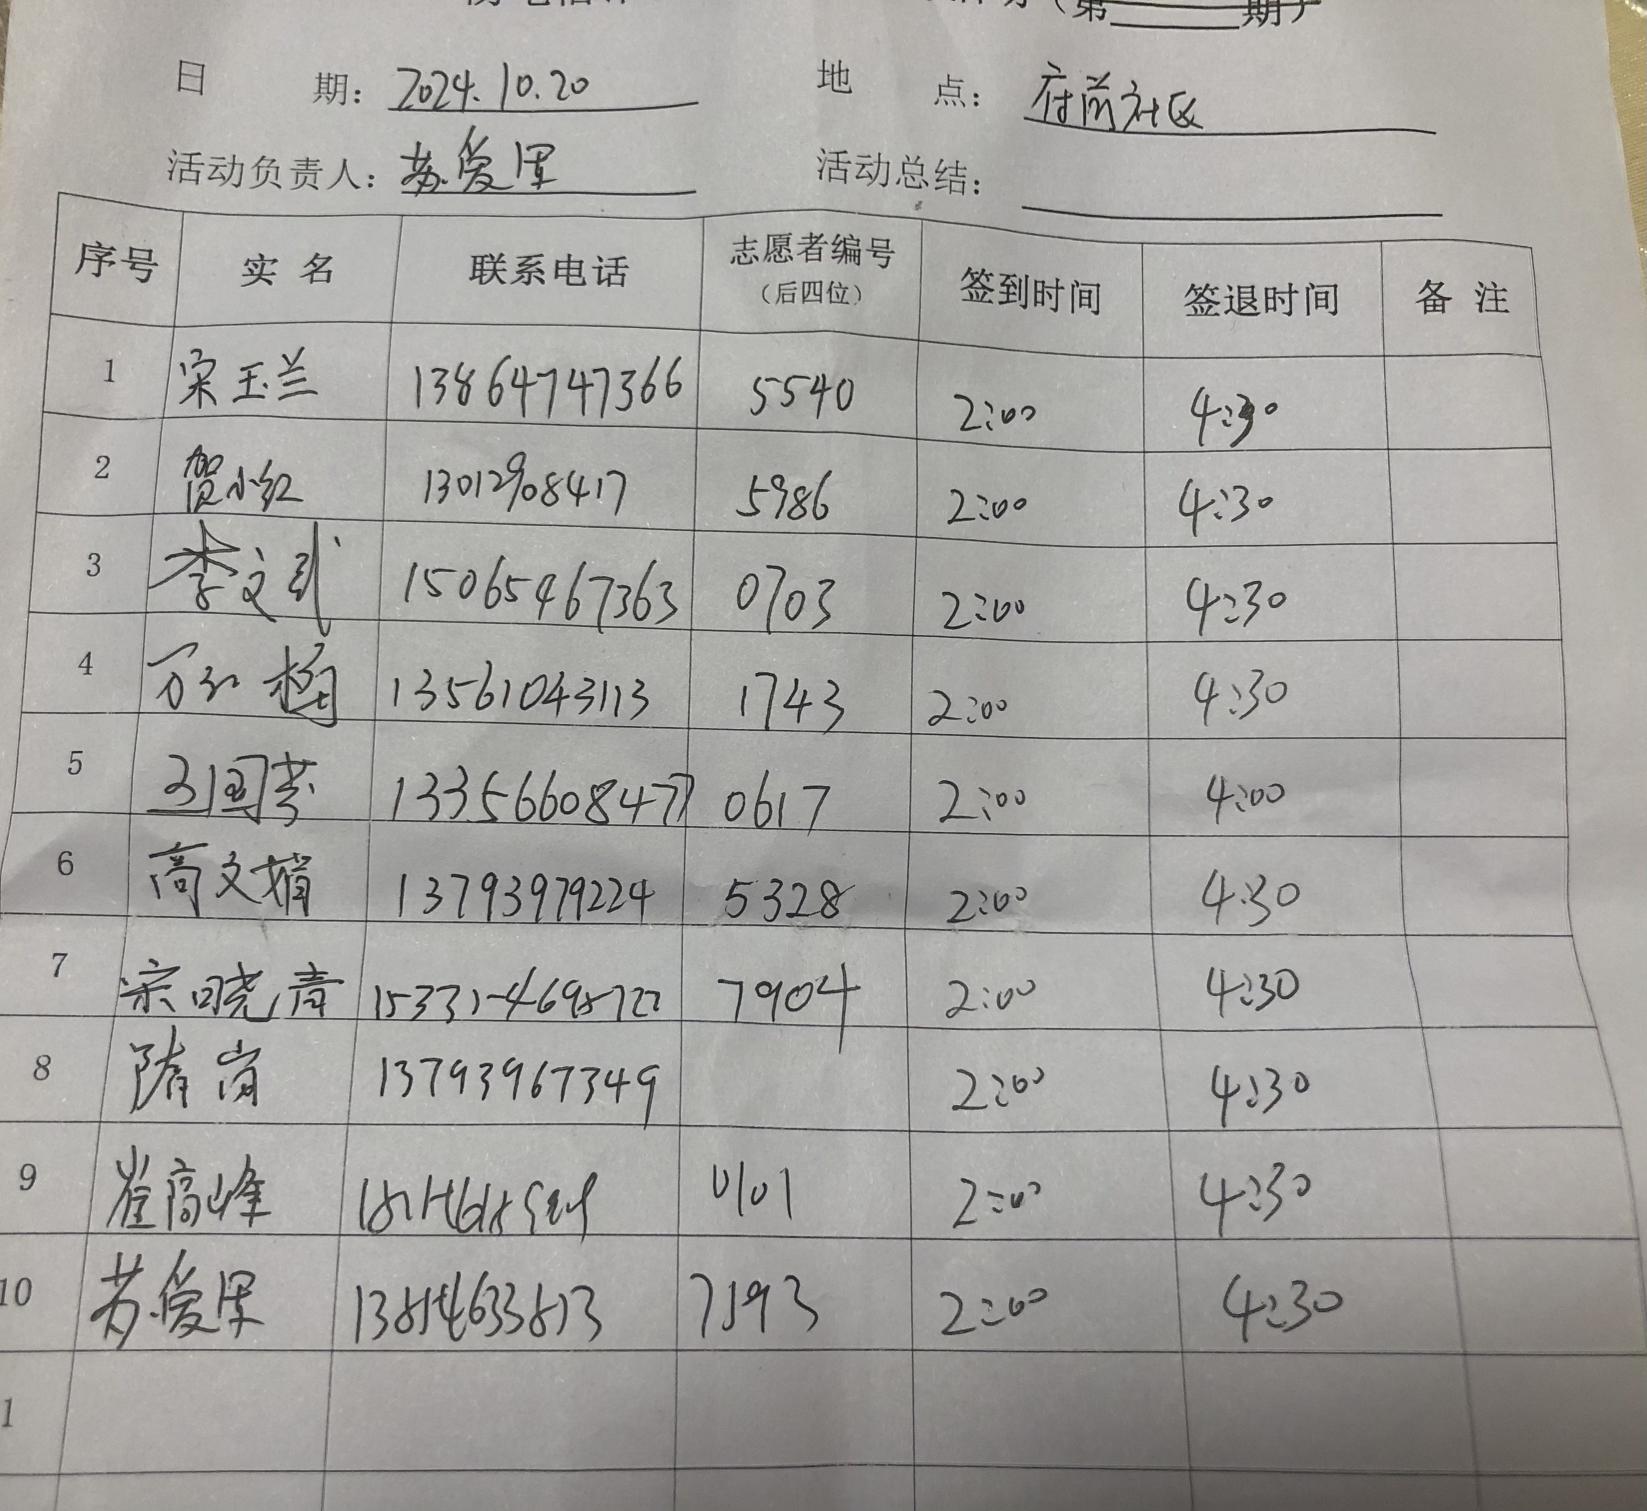 （第 期）
日 期：2024.10.20 地 点：府前社区
活动负责人：苏爱军 活动总结：
序号 实 名 联系电话 志愿者编号（后四位） 签到时间 签退时间 备 注
1 宋玉兰 13864747366 5540 2:00 4:30
2 贺小红 13012908417 5986 2:00 4:30
3 李文武 15065467363 0703 2:00 4:30
4 万红梅 13561043113 1743 2:00 4:30
5 刘国芳 13356608477 0617 2:00 4:00
6 高文娟 13793979224 5328 2:00 4:30
7 宋晓青 7904 2:00 4:30
8 隋岗 13793967349 2:00 4:30
9 崔高峰 0101 2:00 4:30
10 苏爱军 7193 2:00 4:30
1